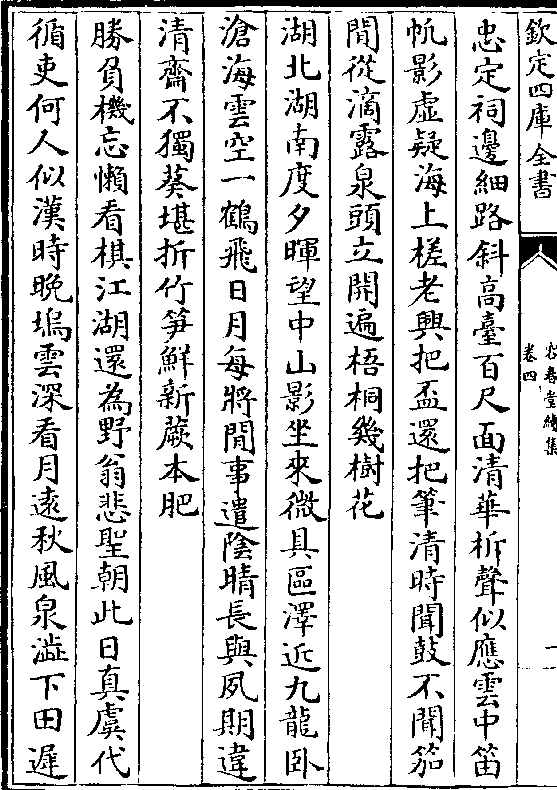 欽定四庫全書
容春堂續集
卷四
一
忠定祠邊細路斜高臺百尺面清華柝聲似應雲中笛
帆影虛疑海上槎老興把盃還把筆清時聞鼓不聞笳
閒從滴露泉頭立開遍梧桐幾樹花
湖北湖南度夕暉望中山影坐來微具區澤近九龍卧
滄海雲空一鶴飛日月每將閒事遣陰晴長與夙期違
清齋不獨葵堪折竹笋鮮新蕨本肥
勝負機忘懶看棋江湖還為野翁悲聖朝此日真虞代
循吏何人似漢時晚塢雲深看月遠秋風泉澁下田遲